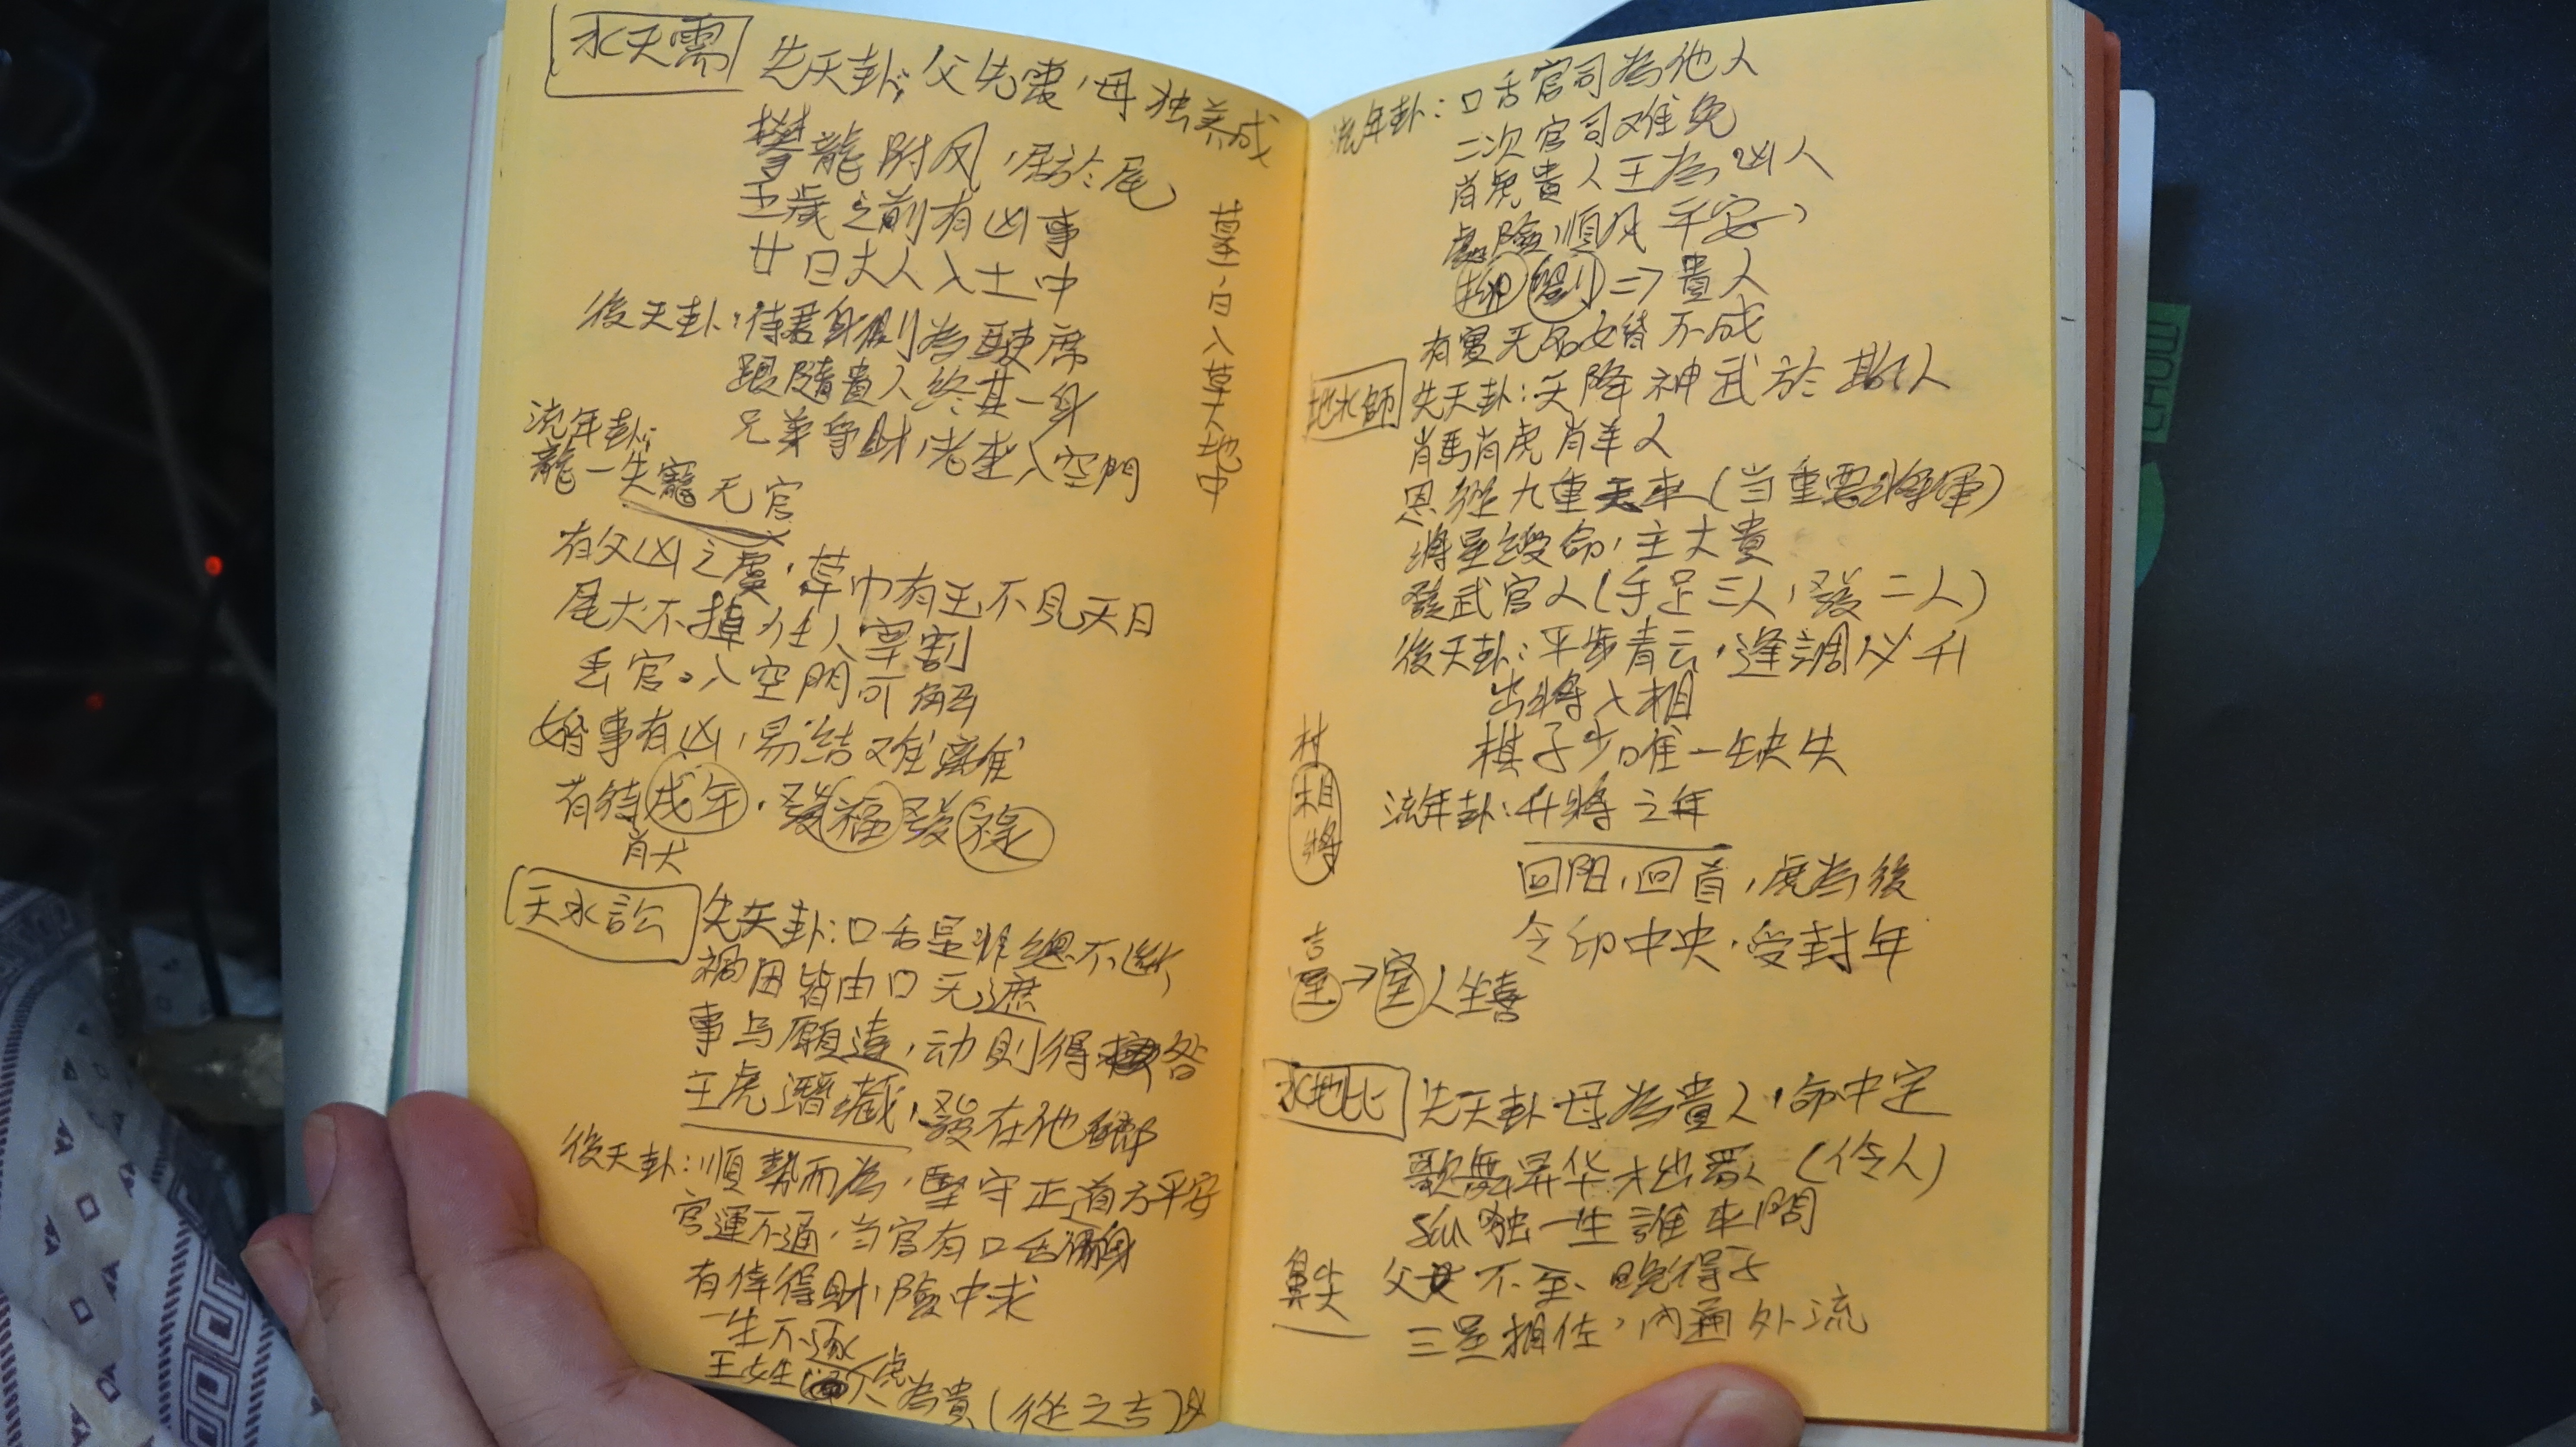 水天需
先天卦: 父先喪,母独养成
攀龍附凤,居於尾
五歲之前有凶事
廿口大人入土中
後天卦:待君身側為駛席
跟隨貴人終其一身
兄弟爭財,老堂入空門
堇一日入草大地中
流年卦:
龍一失寵无官
有父凶之虞,草巾有王不見天日
尾大不掉任人宰割
丢官。入空門可解
婚事有凶,易结难離
有待戌年,發福發祿
肖犬
天水訟
先天卦:口舌是非總不断
禍因皆由口无遮
事与願違,动則得咎
王虎潛藏,發在他鄉
後天卦:順勢而為,堅守正道方平安
官運不通,当官有口舌禍身
有倖得財,險中求
一生不逐
王姓人虎為貴(從之吉)
流年卦:口舌官司為他人
二次官司难免
肖兔貴人王為凶人
處險順风平安
柳劉=>貴人
有實无名女婚不成
地水師
先天卦:天降神武於斯人
肖馬肖虎肖羊人
恩從九重天來(当重要將軍)
將星受命,主大貴
發武官人(手足三人,發二人)
後天卦:平步青云,逢調必升
出將入相
棋子少唯一缺失
流年卦:升將之年
回阳,回首,虎為後
令印中央,受封年
村
相
將
吉
室→室人生喜
水地比
先天卦:母為貴人,命中定
歌舞昇华才出眾(伶人)
孤独一生誰來問
父母不全、晚得子
三星相佐,內通外流